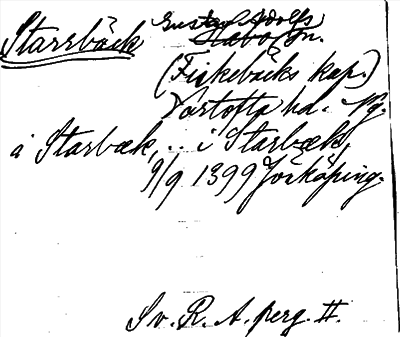 Starrbäck Gustaf Adolfs
(Fiskebäcks kap.)
Vartofta hd. Vg.
å Starbæk, .. i Starbæk,
9/9 1399 Jönköping.
Sv. R. A. perg. II.